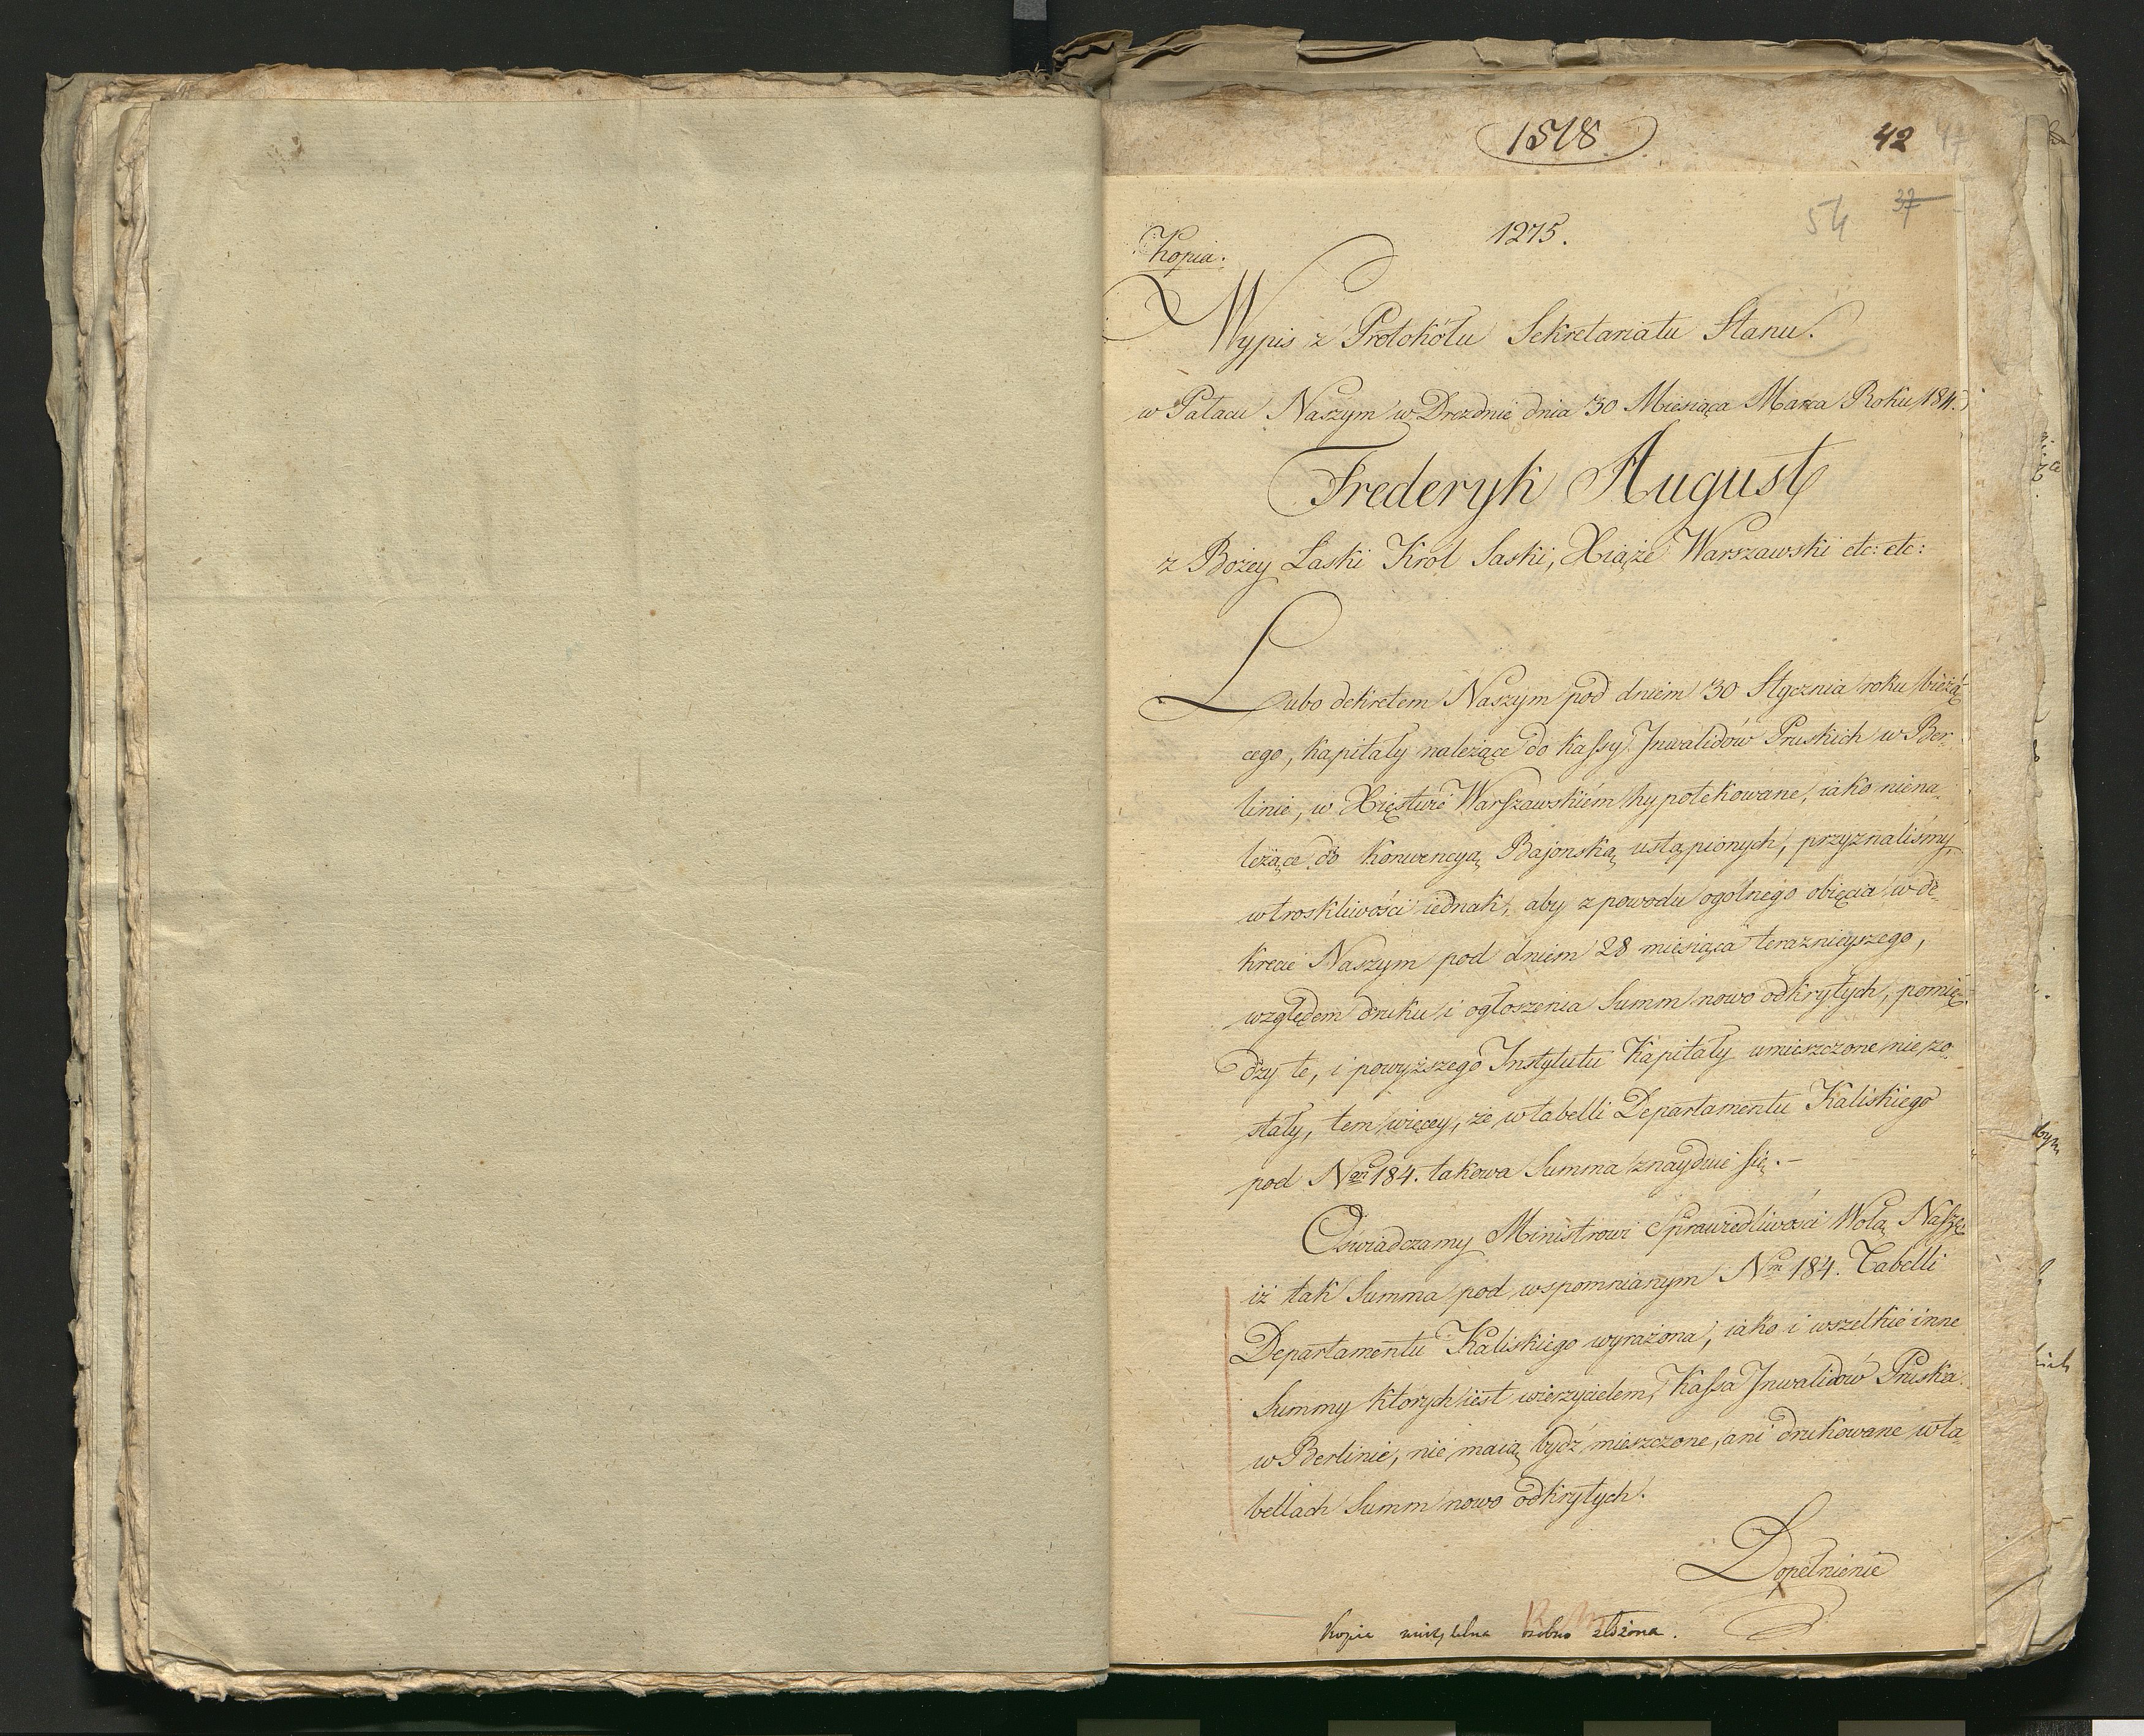 1518
42 47
37
54
1275.
Kopia.
Wypis z Protokółu Sekretariatu Stanu.
w Pałacu Naszym w Dreznie dnia 30 Miesiąca Marca Roku 1811.
Frederyk August
z Bożey Łaski Król Saski, Xiąże Warszawski etc: etc:
Lubo dekretem Naszym pod dniem 30 Stycznia roku bieżą-
cego, kapitały należące do kassy Inwalidów Pruskich w Ber-
linie, w Xięstwie Warszawskiém hypotekowane, iako niena-
leżące do Konwencyą Bajońską ustąpionych, przyznaliśmy,
w troskliwości iednak, aby z powodu ogolnego obięcia w de-
krecie Naszym pod dniem 28 miesiąca teraznieyszego,
względem druku i ogłoszenia Summ nowo odkrytych, pomię-
dzy te, i powyższego Instytutu Kapitały umieszczone nie zo-
stały, tem więcey, że w tabelli Departamentu Kaliskiego
pod Nrem 184. takowa Summa znayduie się. –
Oświadczamy Ministrowi Sprawiedliwości Wolą Naszę
iż tak Summa pod wspomnianym Nrm 184. Tabelli
Departamentu Kaliskiego wyrażona, iako i wszelkie inne
Summy których iest wierzycielem, Kassa Inwalidów Pruska
w Berlinie, nie maią bydź mieszczone, ani drukowane w ta-
bellach Summ nowo odkrytych.
Dopełnienie
Kopia osobno złożona.